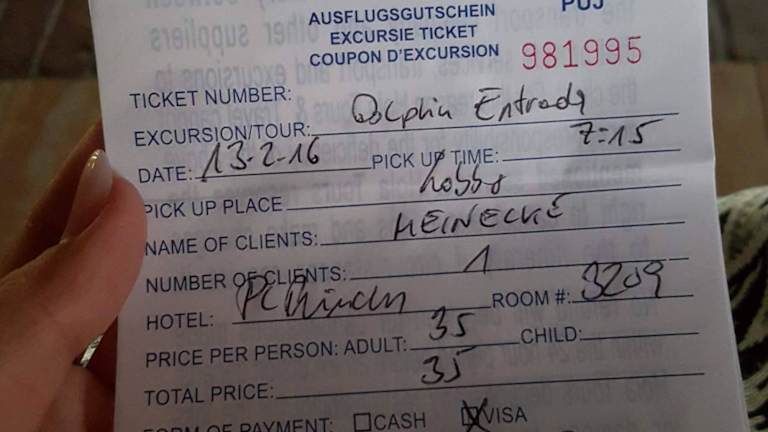 AUSFLUGSGUTSCHEIN PUJ
EXCURSIE TICKET
COUPON D'EXCURSION 981995
TICKET NUMBER:
EXCURSION/TOUR: Dolphin Entrada
DATE: 13-2-16 PICK UP TIME: 7=15
PICK UP PLACE Lobby
NAME OF CLIENTS: MEINECKE
NUMBER OF CLIENTS: 1
HOTEL: ROOM #: 3209
PRICE PER PERSON: ADULT: 35 CHILD:
TOTAL PRICE: 35
FORM OF PAYMENT: CASH VISA